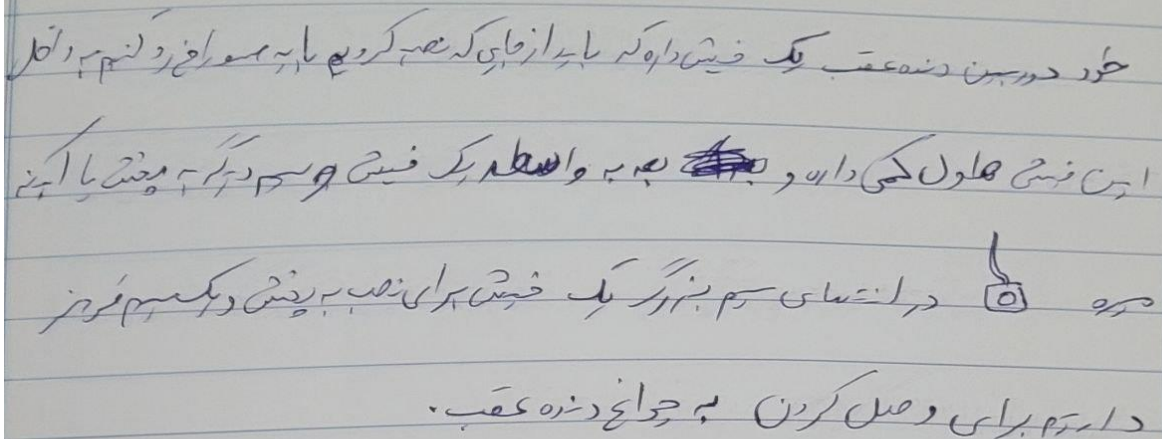 خود دوربین دنده عقب یک فیش داره که باید از جایی که نصب کردیم با یه سوراخ رد کنیم به داخل
این فیش طول کمی داره و بعد به واسطه یک فیش و سیم دیگه به پخش یا آینه
میره در انتهای سیم بزرگ یک فیش برای نصب به پخش و یک سیم قرمز
داریم برای وصل کردن به چراغ دنده عقب.